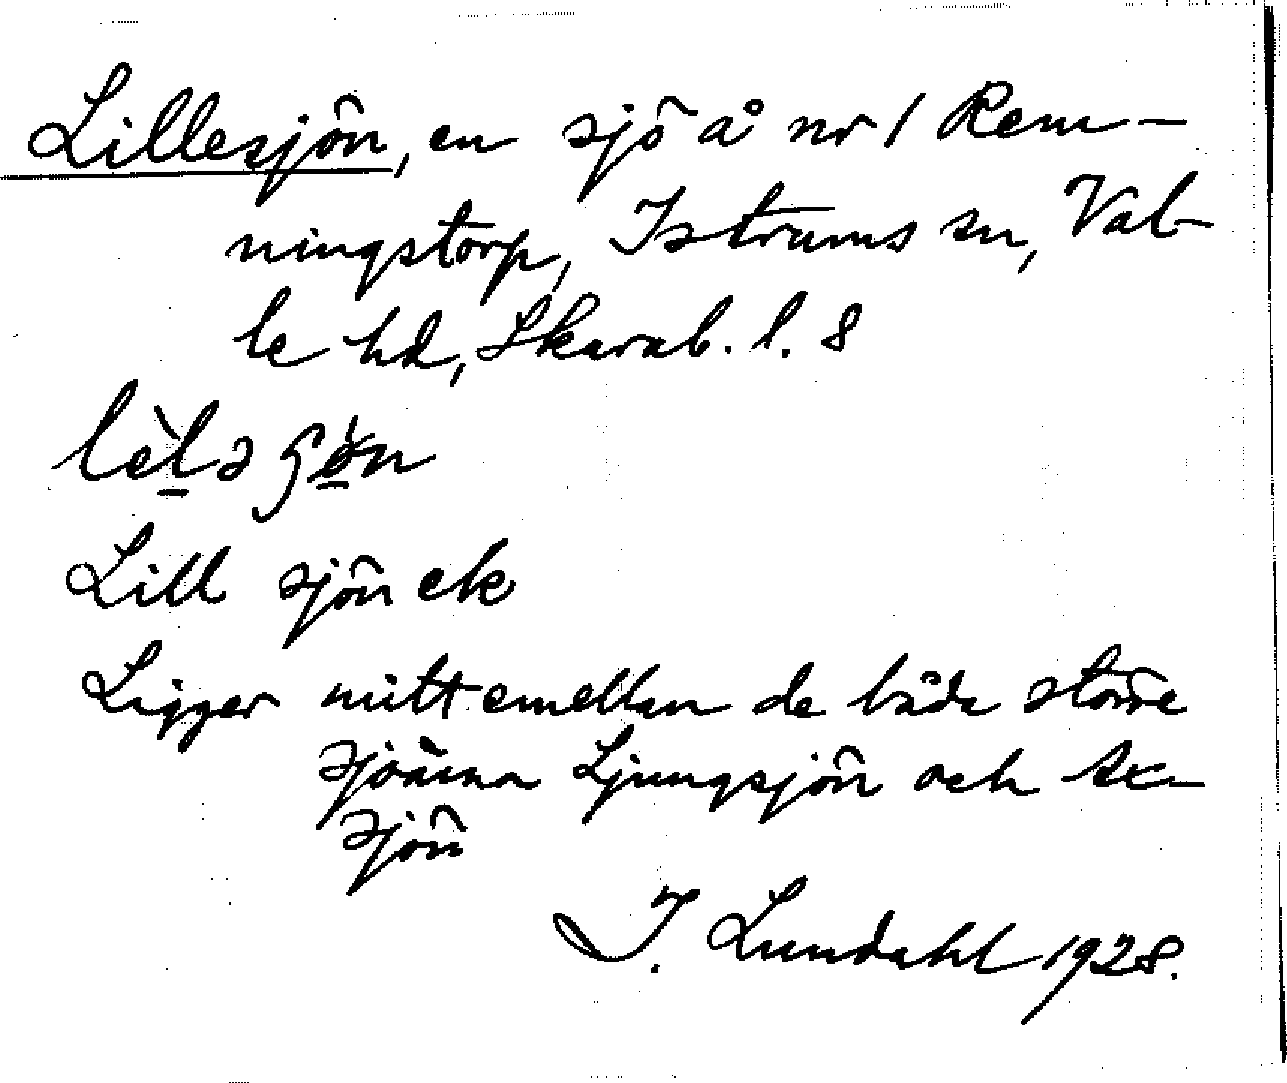 Lillesjön, en sjö å nr 1 Rem-
ningstorp, Istrums sn, Val-
le hd, Skarab. l. 8
Lill sjön ek
Ligger mitt emellan de båda större
sjöarna Ljungsjön och
sjön
I. Lundahl 1928.